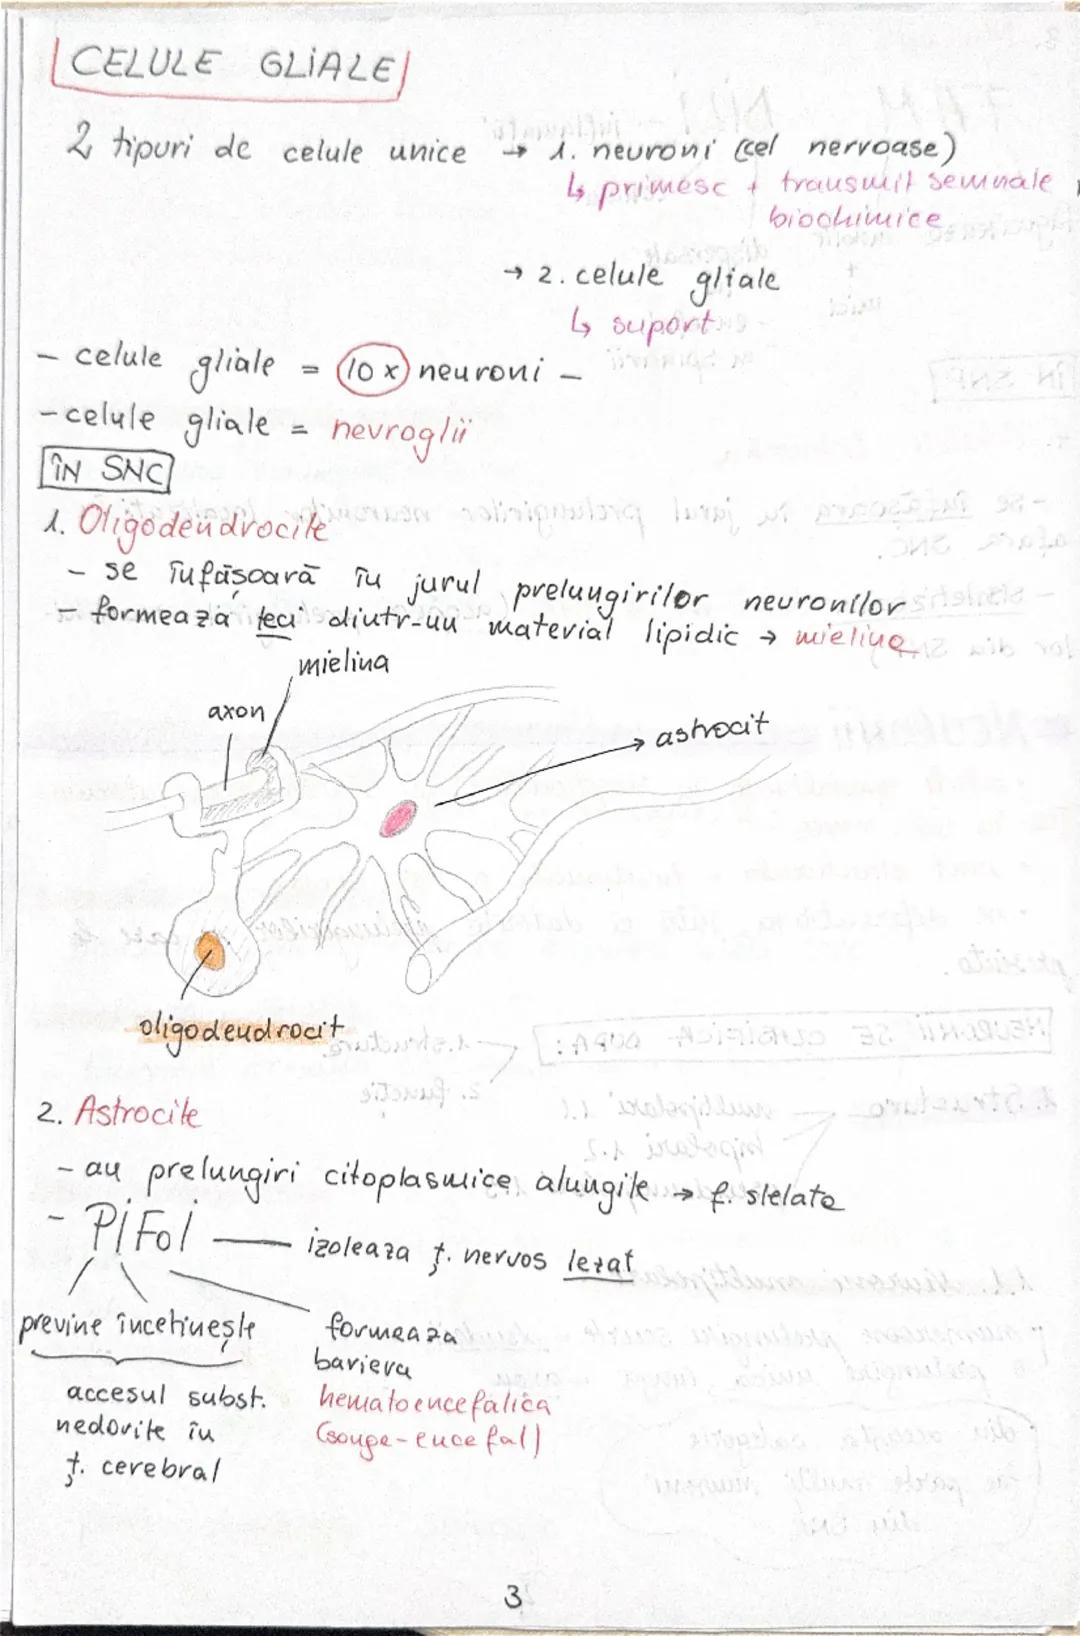 CELULE GLIALE
2 tipuri de celule unice → 1. neuroni (cel nervoase)
↳ primesc + transmit semnale
biochimice
→ 2. celule gliale
↳ suport
- celule gliale = 10 x neuroni -
- celule gliale = nevroglii
ÎN SNC
1. Oligodendrocite
- se înfășoară în jurul prelungirilor neuronilor
- formează teci dintr-un material lipidic → mielina
mielina
axon
astrocit
oligodendrocit
2. Astrocite
- au prelungiri citoplasmice alungite → f. stelate
- PIFOI — izoleaza ț. nervos lezat
previne încetinește
formeaza
bariera
accesul subst.
hematoencefalică
nedorite în
(sange-encefal)
ț. cerebral
3